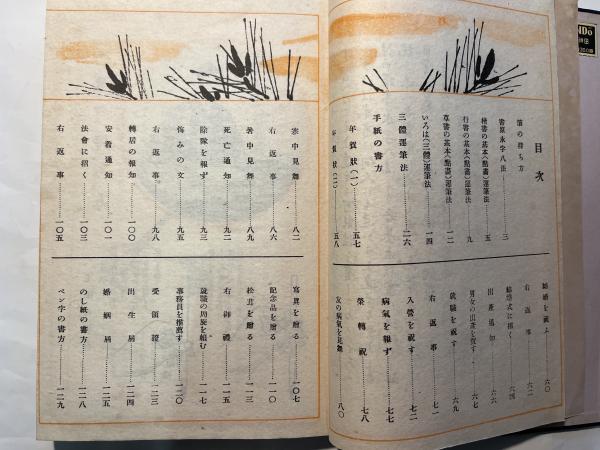 目次
筆の持ち方
書原永字八法……三
楷書の基本(點畫)運筆法……五
行書の基本(點畫)運筆法……九
草書の基本(點畫)運筆法……一二
いろは(三體)運筆法……一四
三體運筆法……二六
手紙の書方
年賀狀(一)……五七
年賀狀(二)……五八
結婚を祝ふ……六〇
右返事……六二
結婚式に招く……六四
出產通知……六六
男女の出產を賀す……六七
就職を祝す……六九
右返事……七一
入營を祝す……七五
病氣を報ず……七七
榮轉祝……七八
友の病氣を見舞……八〇
寒中見舞……八二
右返事……八六
暑中見舞……八九
死亡通知……九二
除隊を報ず……九三
悔みの文……九五
右返事……九八
轉居の報知……一〇〇
安着通知……一〇一
法會に招く……一〇三
右返事……一〇五
寫眞を贈る……一〇七
記念品を贈る……一一〇
松茸を贈る……一一三
右御禮……一一五
就職の周旋を賴む……一一七
事務員を推薦す……一二〇
受領證……一二三
出生屆……一二四
婚姻屆……一二六
のし紙の書方……一二八
ペン字の書方……一二九